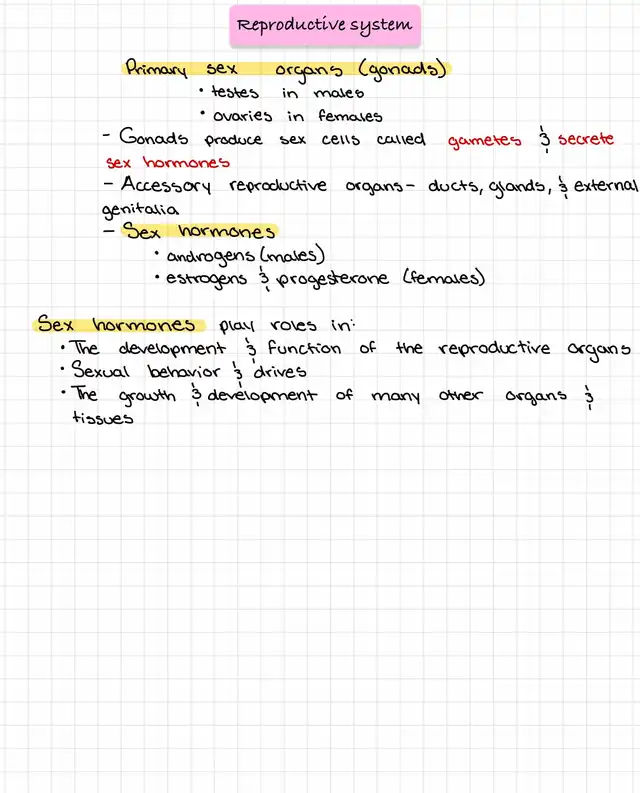 Reproductive system
Primary sex organs (gonads)
• testes in males
• ovaries in females
- Gonads produce sex cells called gametes & secrete
sex hormones
- Accessory reproductive organs- ducts, glands, & external
genitalia
- Sex hormones
• androgens (males)
• estrogens & progesterone (females)
Sex hormones play roles in:
• The development & function of the reproductive organs
• Sexual behavior & drives
• The growth & development of many other organs &
tissues